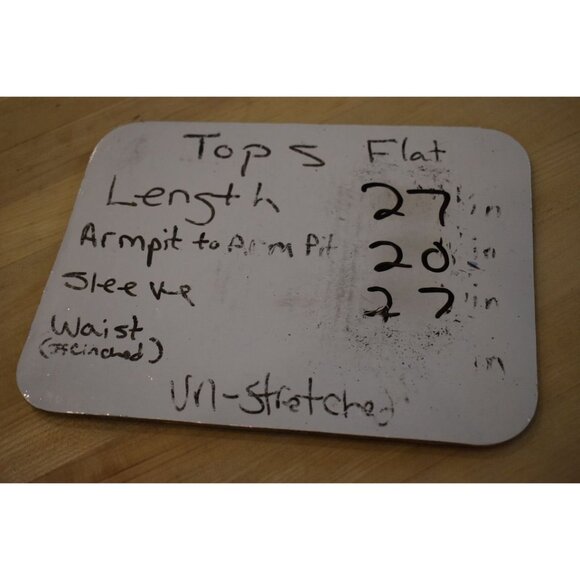 Tops Flat
Length 27 in
Armpit to Arm Pit 20 in
Sleeve 27 in
Waist in
(If Cinched)
Un-Stretched